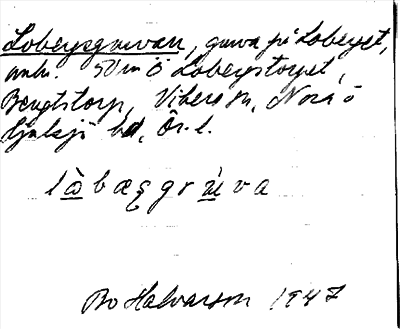 Lobergsgruvan, gruva på Loberget,
omkr. 50 m ö Lobergstorpet,
Bengtstorp, Vikers sn, Nora o
Hjulsjö bd, Ör. l.
lòbæșgrùva
Bo Halvarson 1947